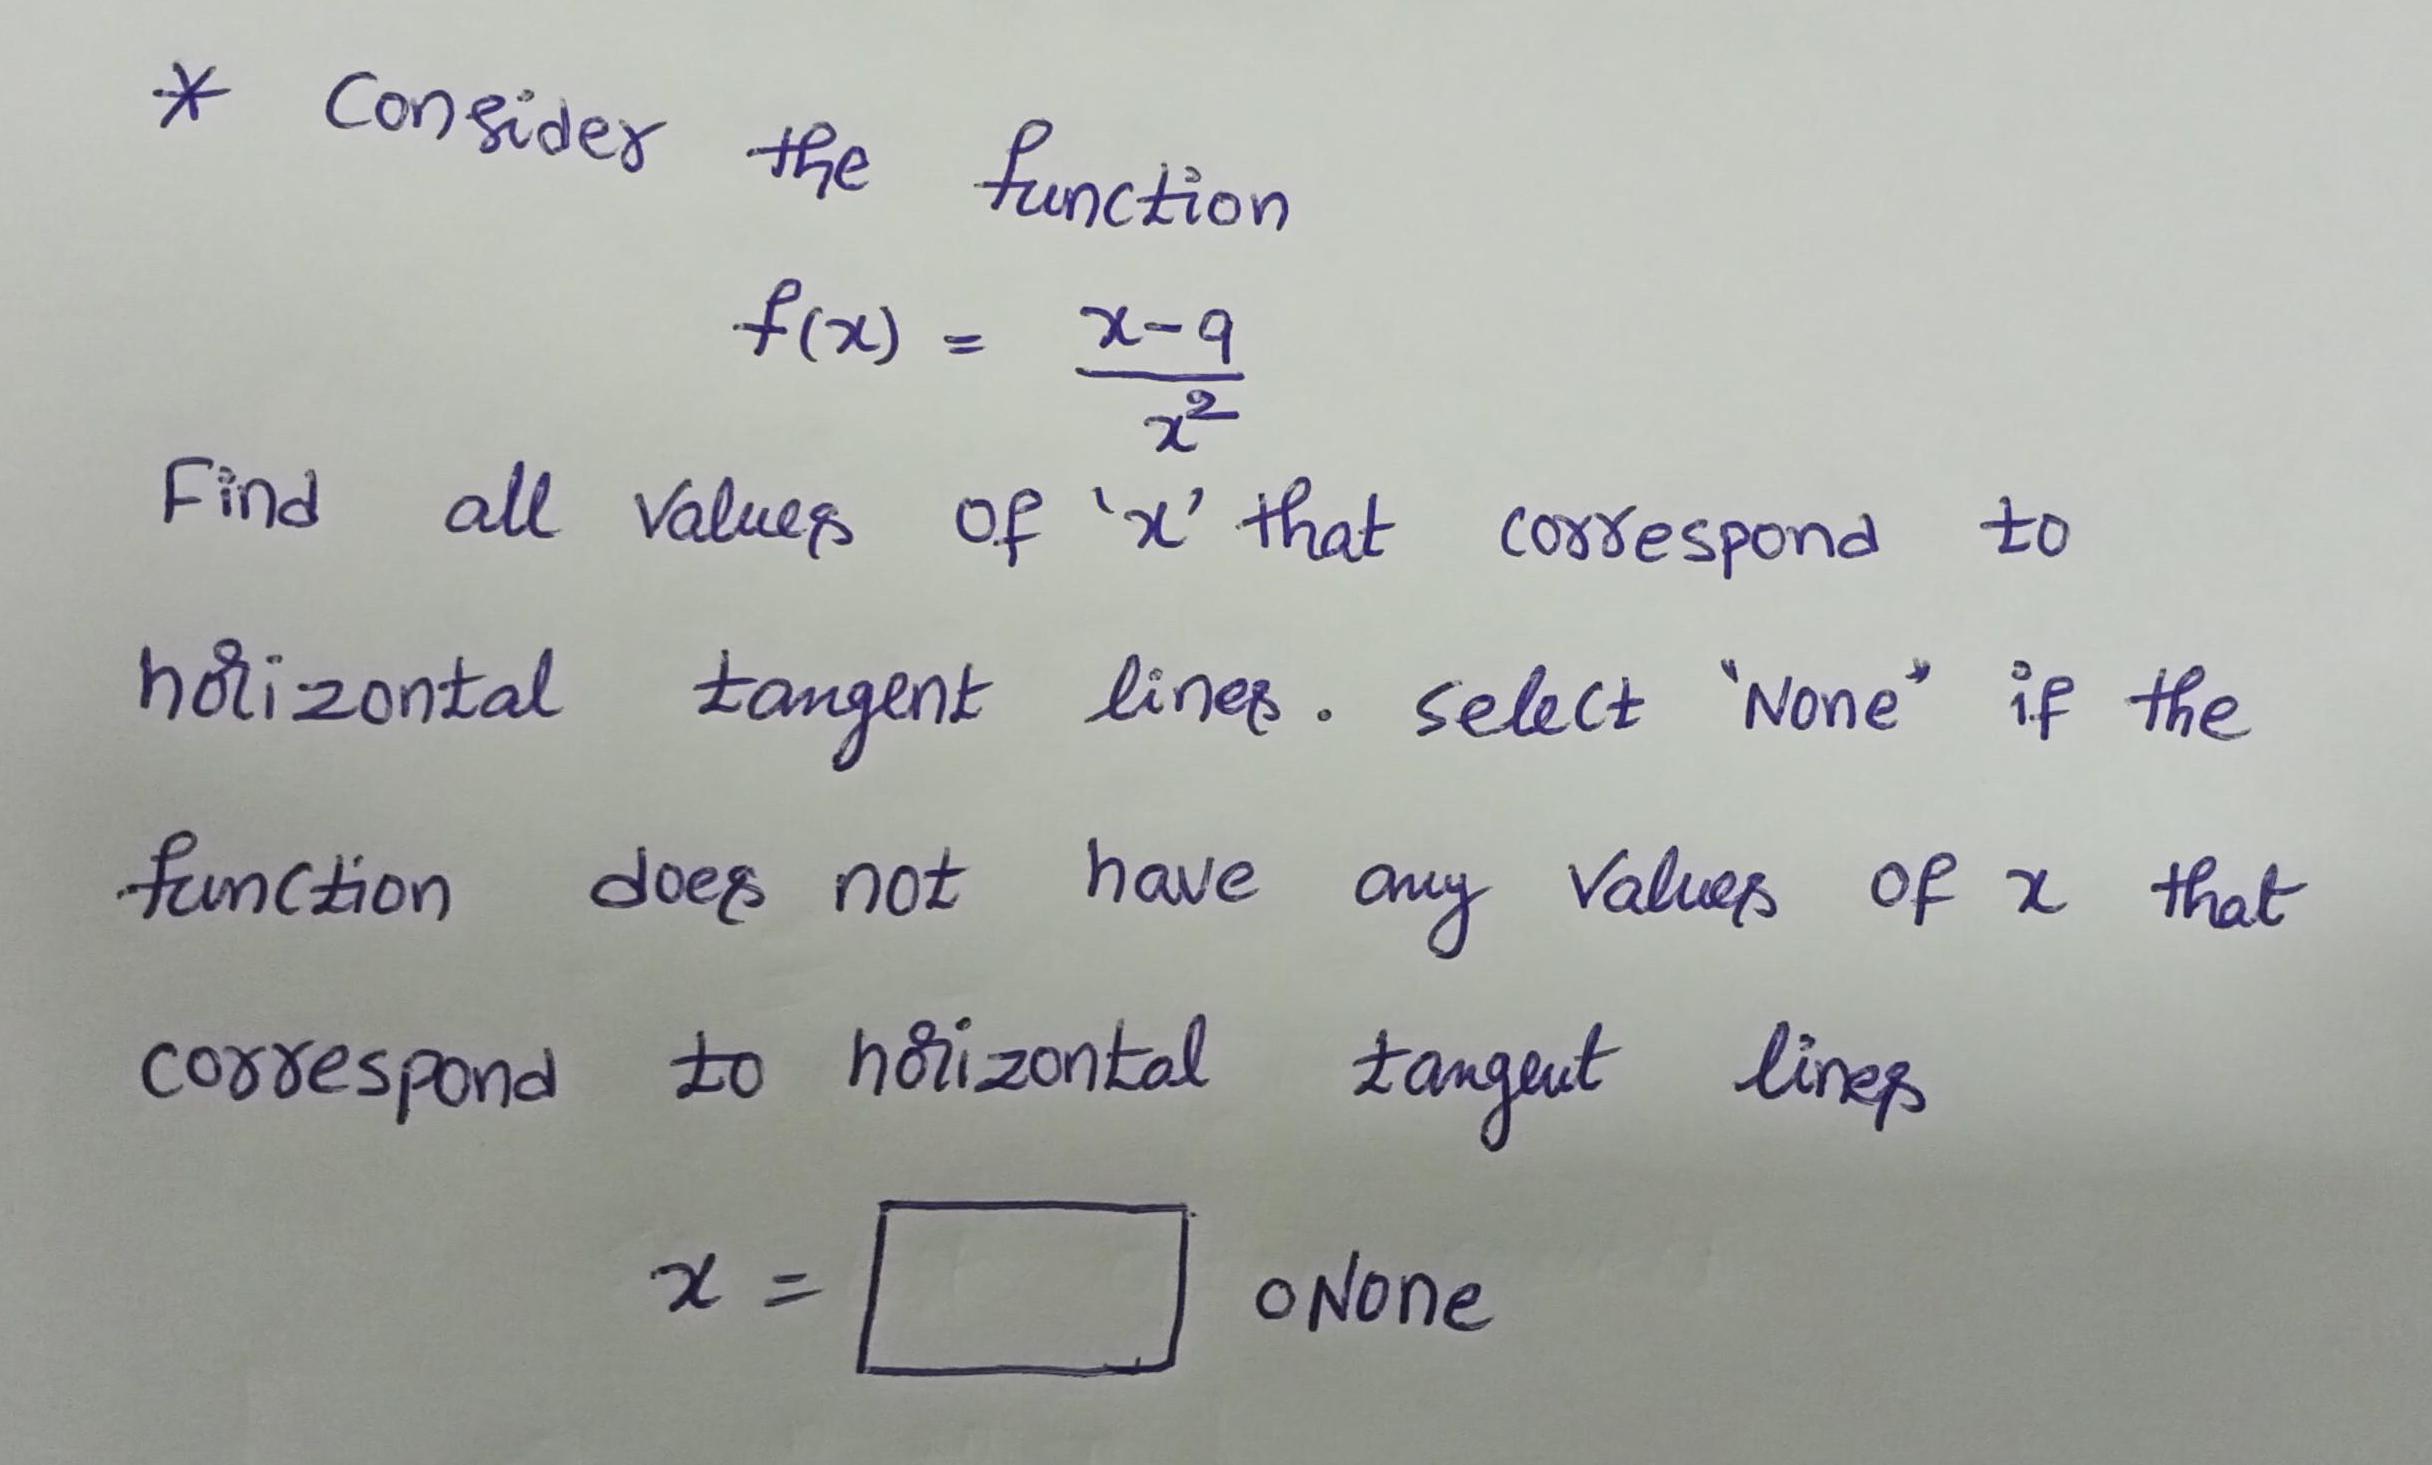 * Consider the function
f(x) = x-9
x²
Find all values of 'x' that correspond to
horizontal tangent lines. select "None" if the
function does not have any values of x that
correspond to horizontal tangent lines
x = ○ None